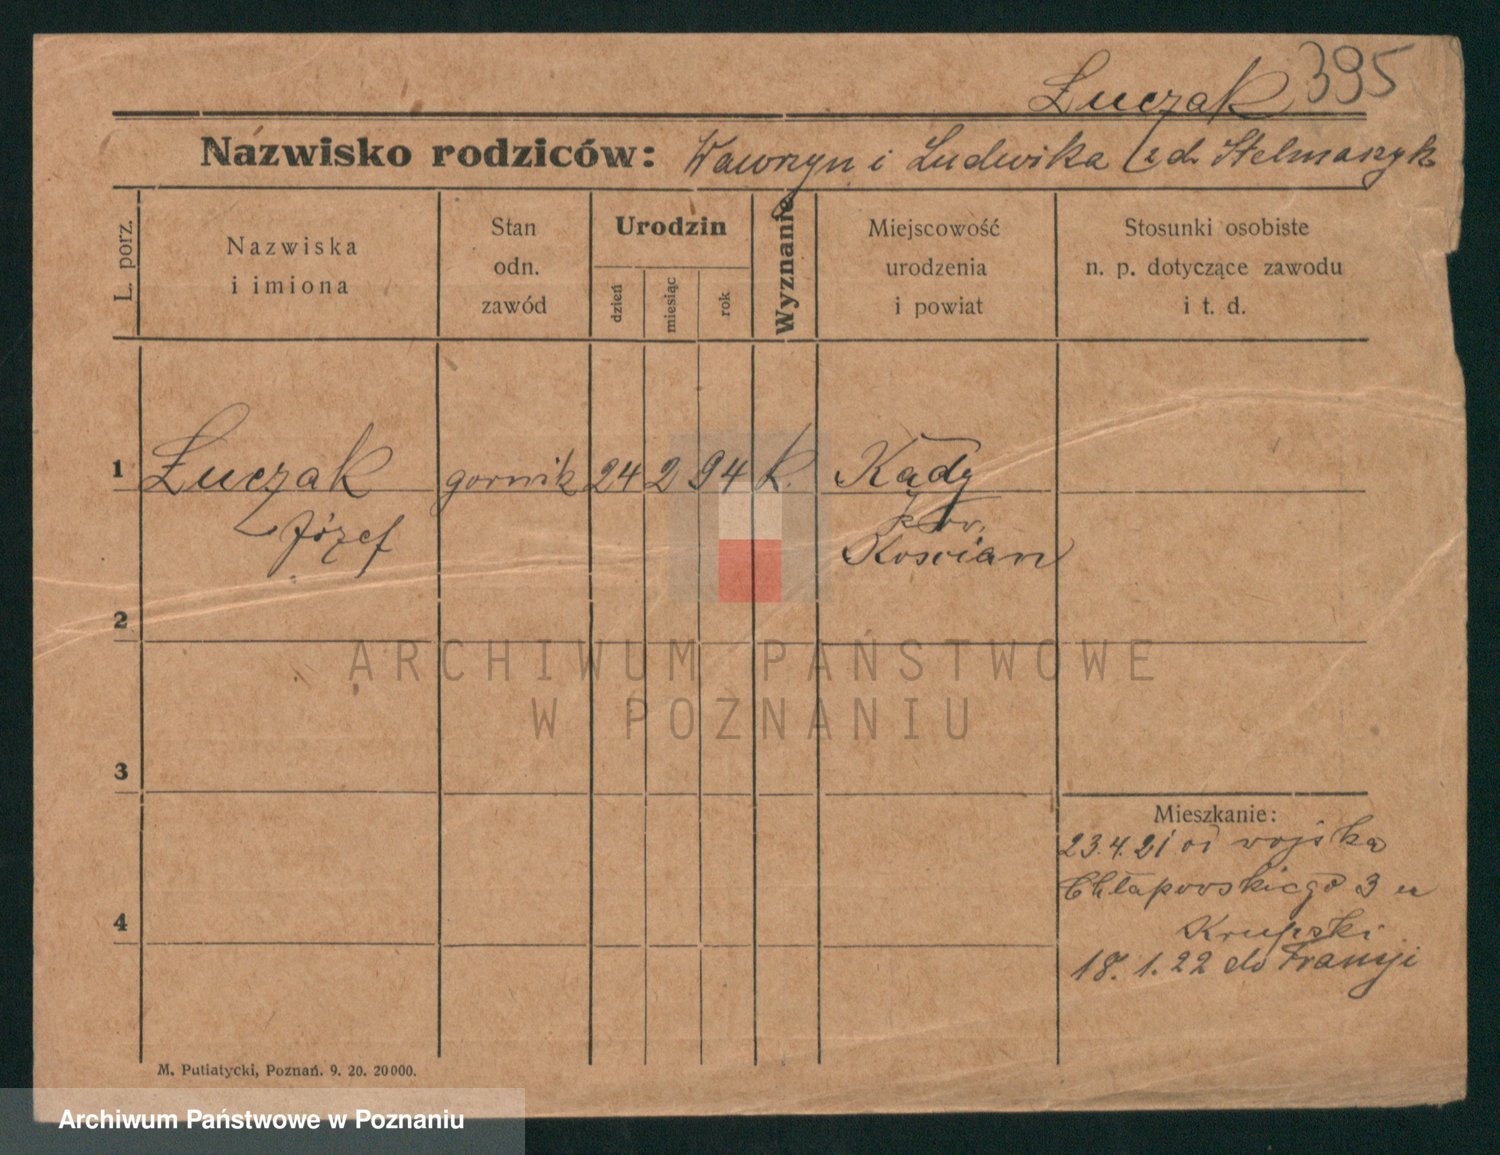 Łuczak 395
Nazwisko rodziców: Wawrzyn i Ludwika zd. Stelmaszyk
L. porz.
Nazwiska
i imiona
Stan
odn.
zawód
Urodzin
dzień
miesiąc
rok
Wyznanie
Miejscowość
urodzenia
i powiat
Stosunki osobiste
n. p. dotyczące zawodu
i t. d.
1 Łuczak gornik 24 2 94 k. Kądy
Józef pow.
Koscian
2
ARCHIWUM PAŃSTWOWE
W POZNANIU
3
Mieszkanie:
23.4.21 od wojska
Chłapowskiego 3 u
4
Krupski
18.1.22 do Francji
M. Putiatycki, Poznań. 9. 20. 20000.
Archiwum Państwowe w Poznaniu